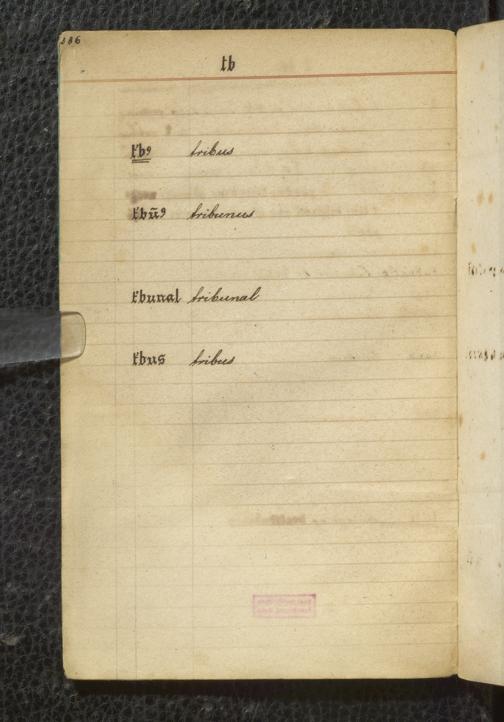 tb
tbꝯ tribus
tbūꝯ tribunus
tbunal tribunal
tbus tribus